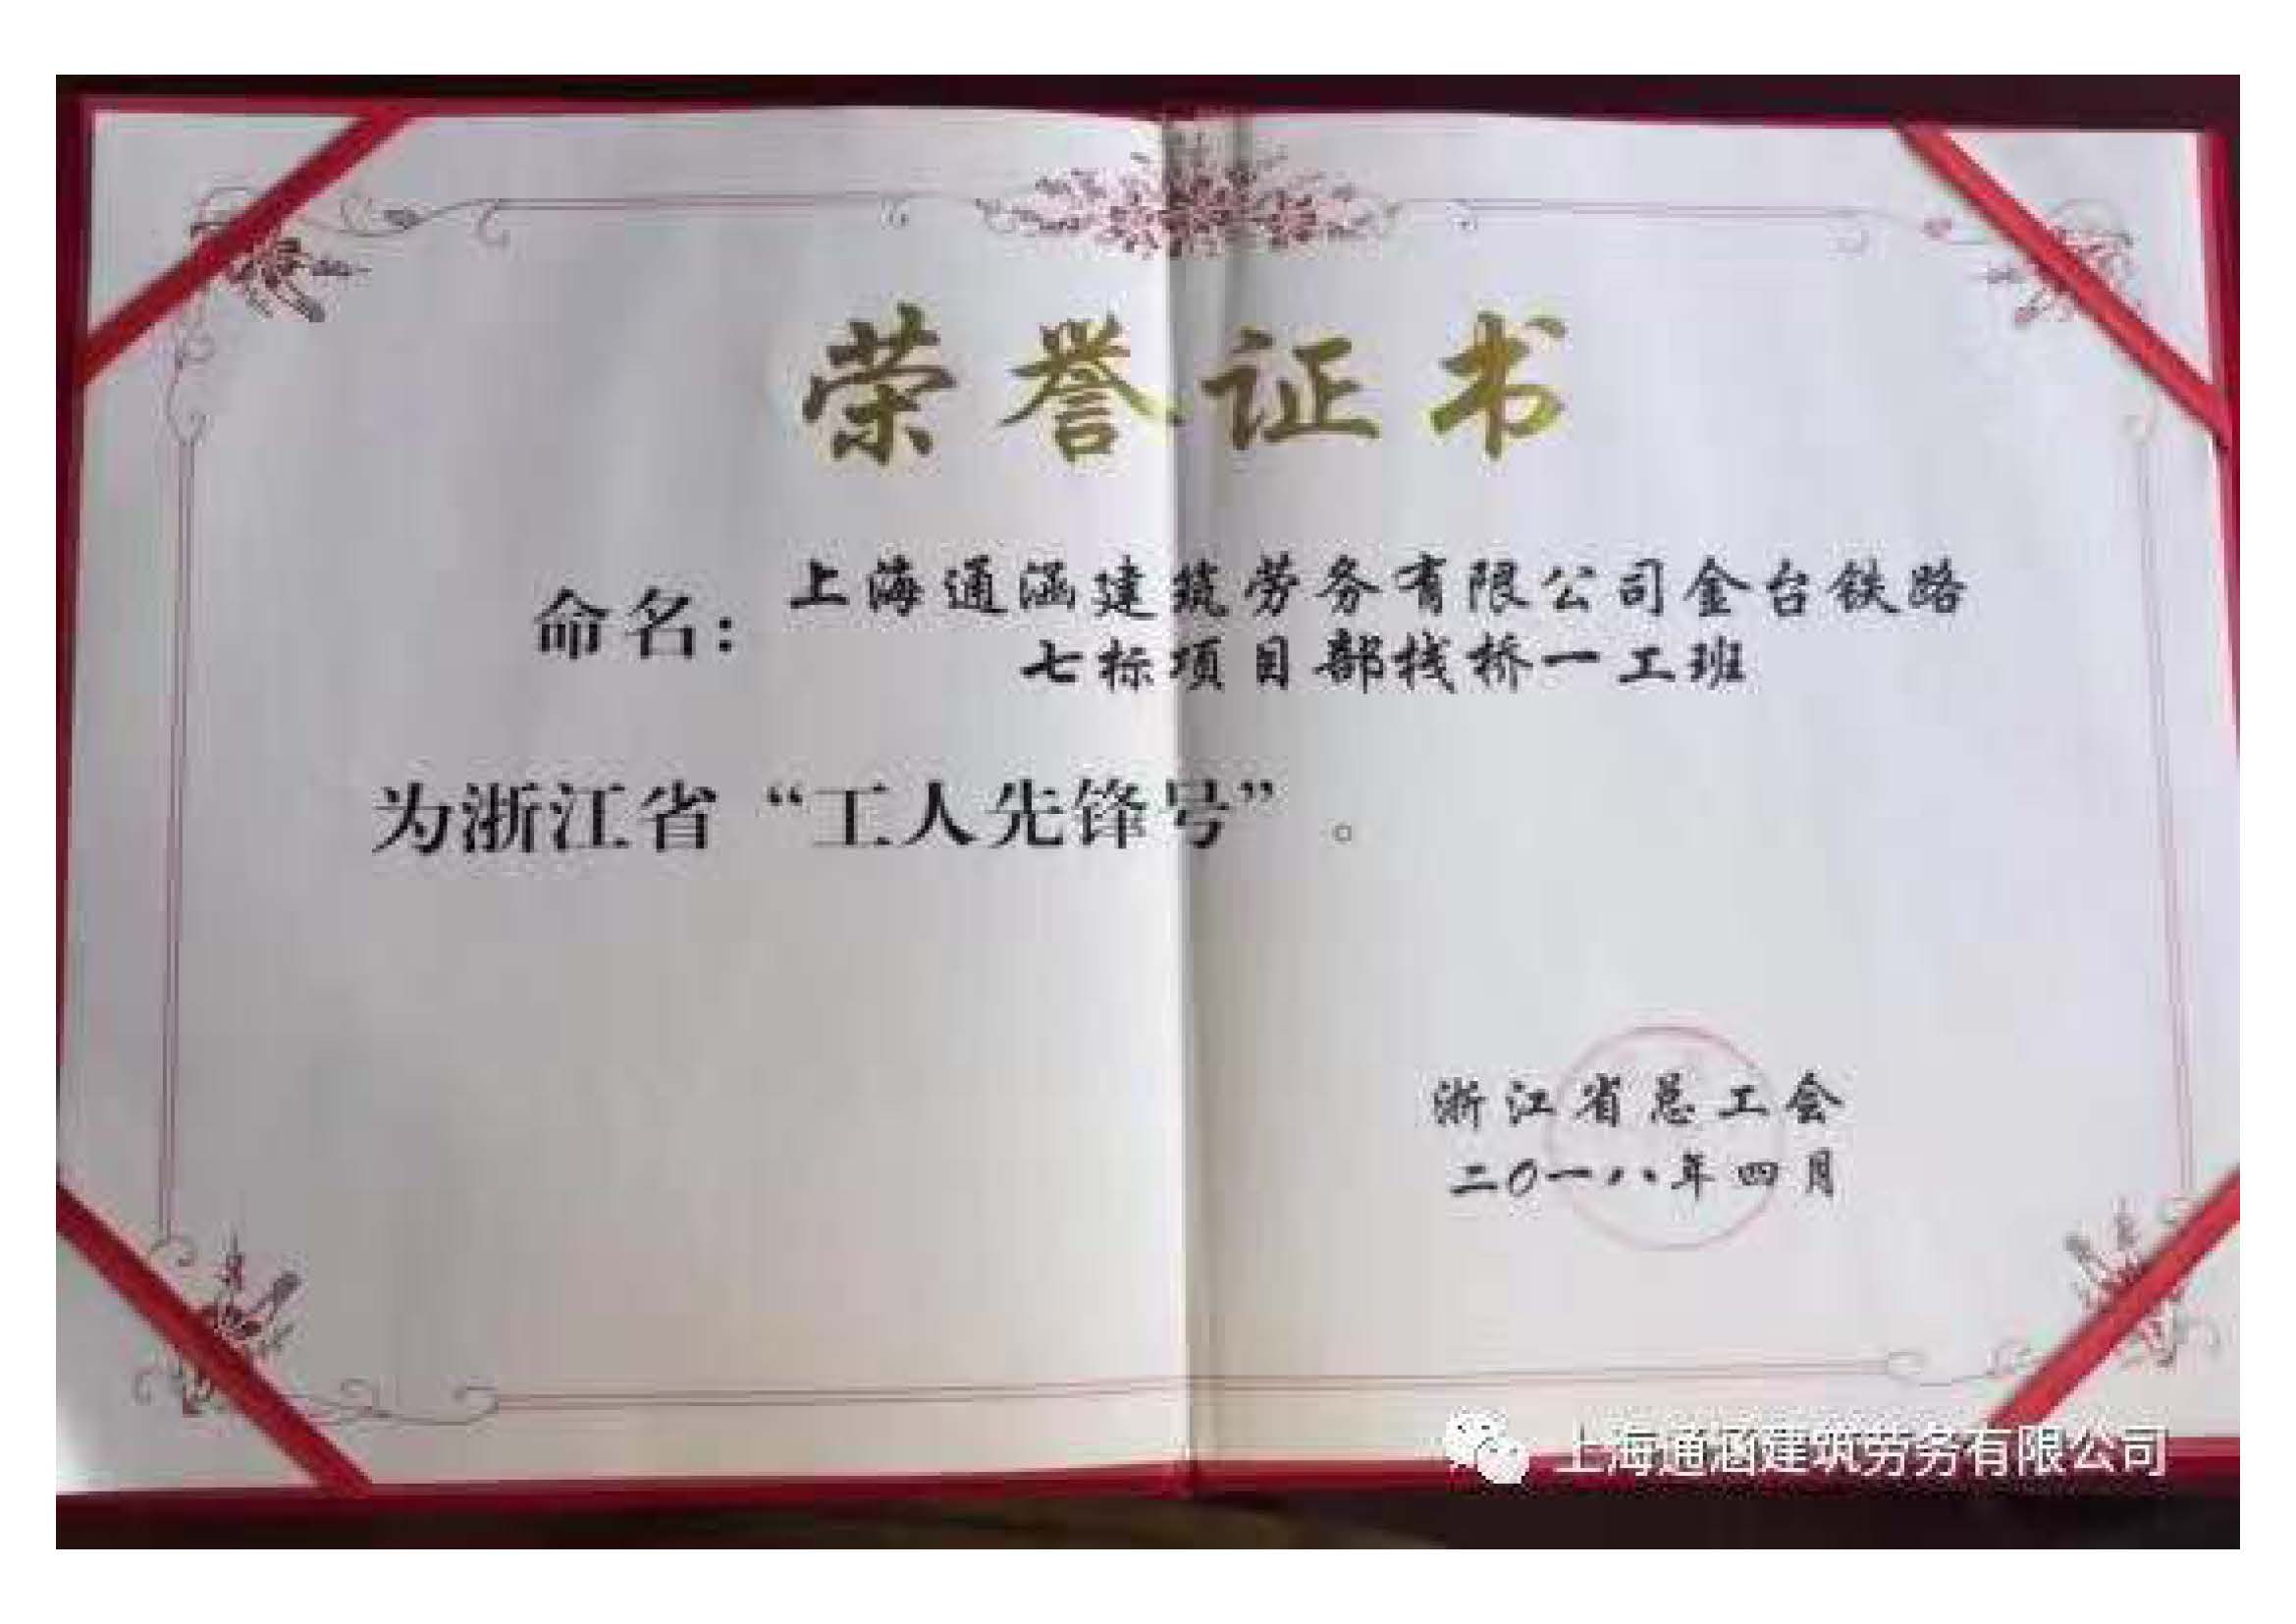 荣誉证书
命名：上海通涵建筑劳务有限公司金台铁路
七标项目部栈桥一工班
为浙江省“工人先锋号”。
浙江省总工会
二〇一八年四月
上海通涵建筑劳务有限公司